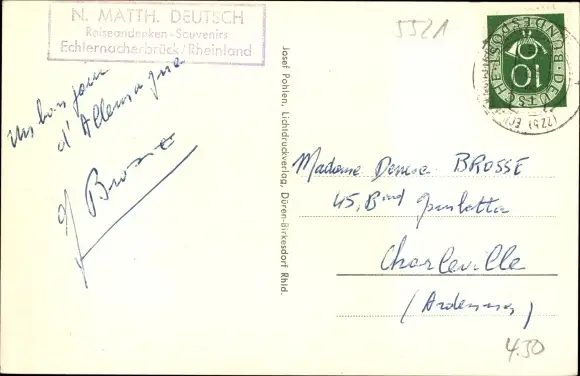 N. MATTH. DEUTSCH
Reiseandenken-Souvenirs
Echternacherbrück/Rheinland
5521
DEUTSCHE BUNDESPOST
10
(22b)
Un bonjour
d'Allemagne
J Brosse
Josef Pohlen, Lichtdruckverlag, Düren-Birkesdorf Rhld.
Madame Denise BROSSE
45, Bard Gambetta
Charleville
(Ardennes)
4.50